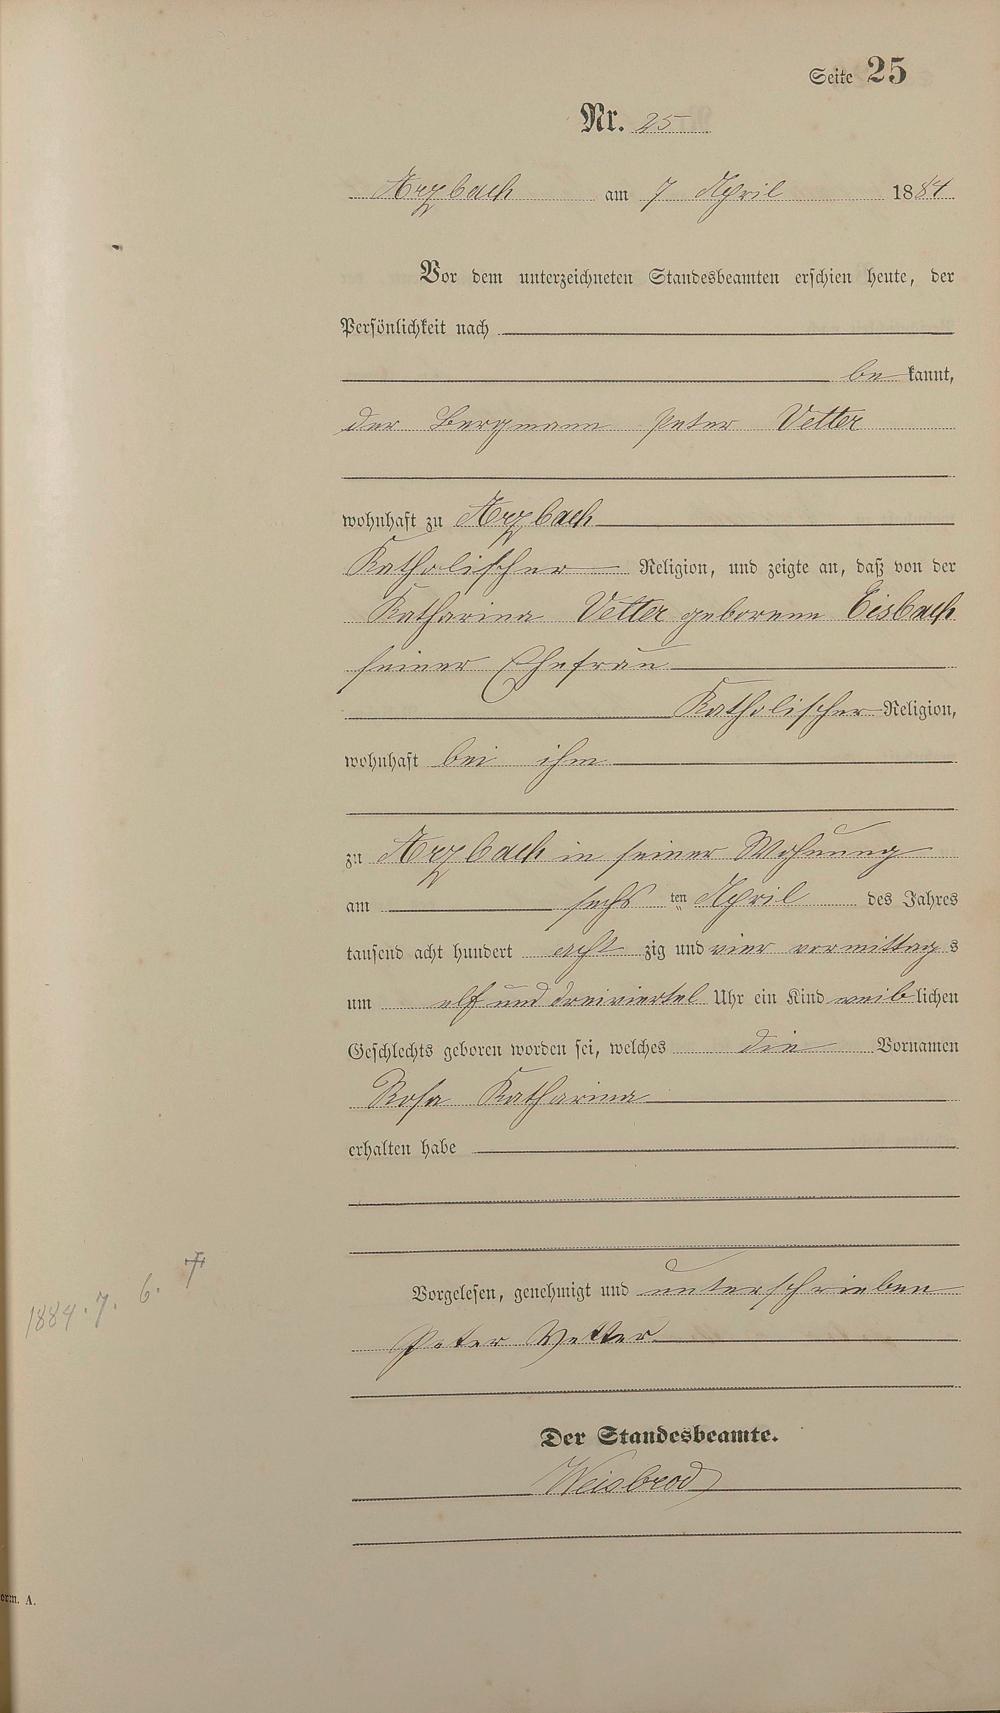 Seite 25
Nr. 25
Arzbach am 7 April 1884
Vor dem unterzeichneten Standesbeamten erschien heute, der
Persönlichkeit nach
be kannt,
der Bergmann Peter Vetter
wohnhaft zu Arzbach
Katholischer Religion, und zeigte an, daß von der
Katharina Vetter geborene Eisbach
seiner Ehefrau
Katholischer Religion,
wohnhaft bei ihm
zu Arzbach in seiner Wohnung
am sechs ten April des Jahres
tausend acht hundert acht zig und vier vormittag s
um elf und dreiviertel Uhr ein Kind weib lichen
Geschlechts geboren worden sei, welches die Vornamen
Rosa Katharina
erhalten habe
1884. 7. 6. †
Vorgelesen, genehmigt und unterschrieben
Peter Vetter
Der Standesbeamte.
Weisbrod
orm. A.